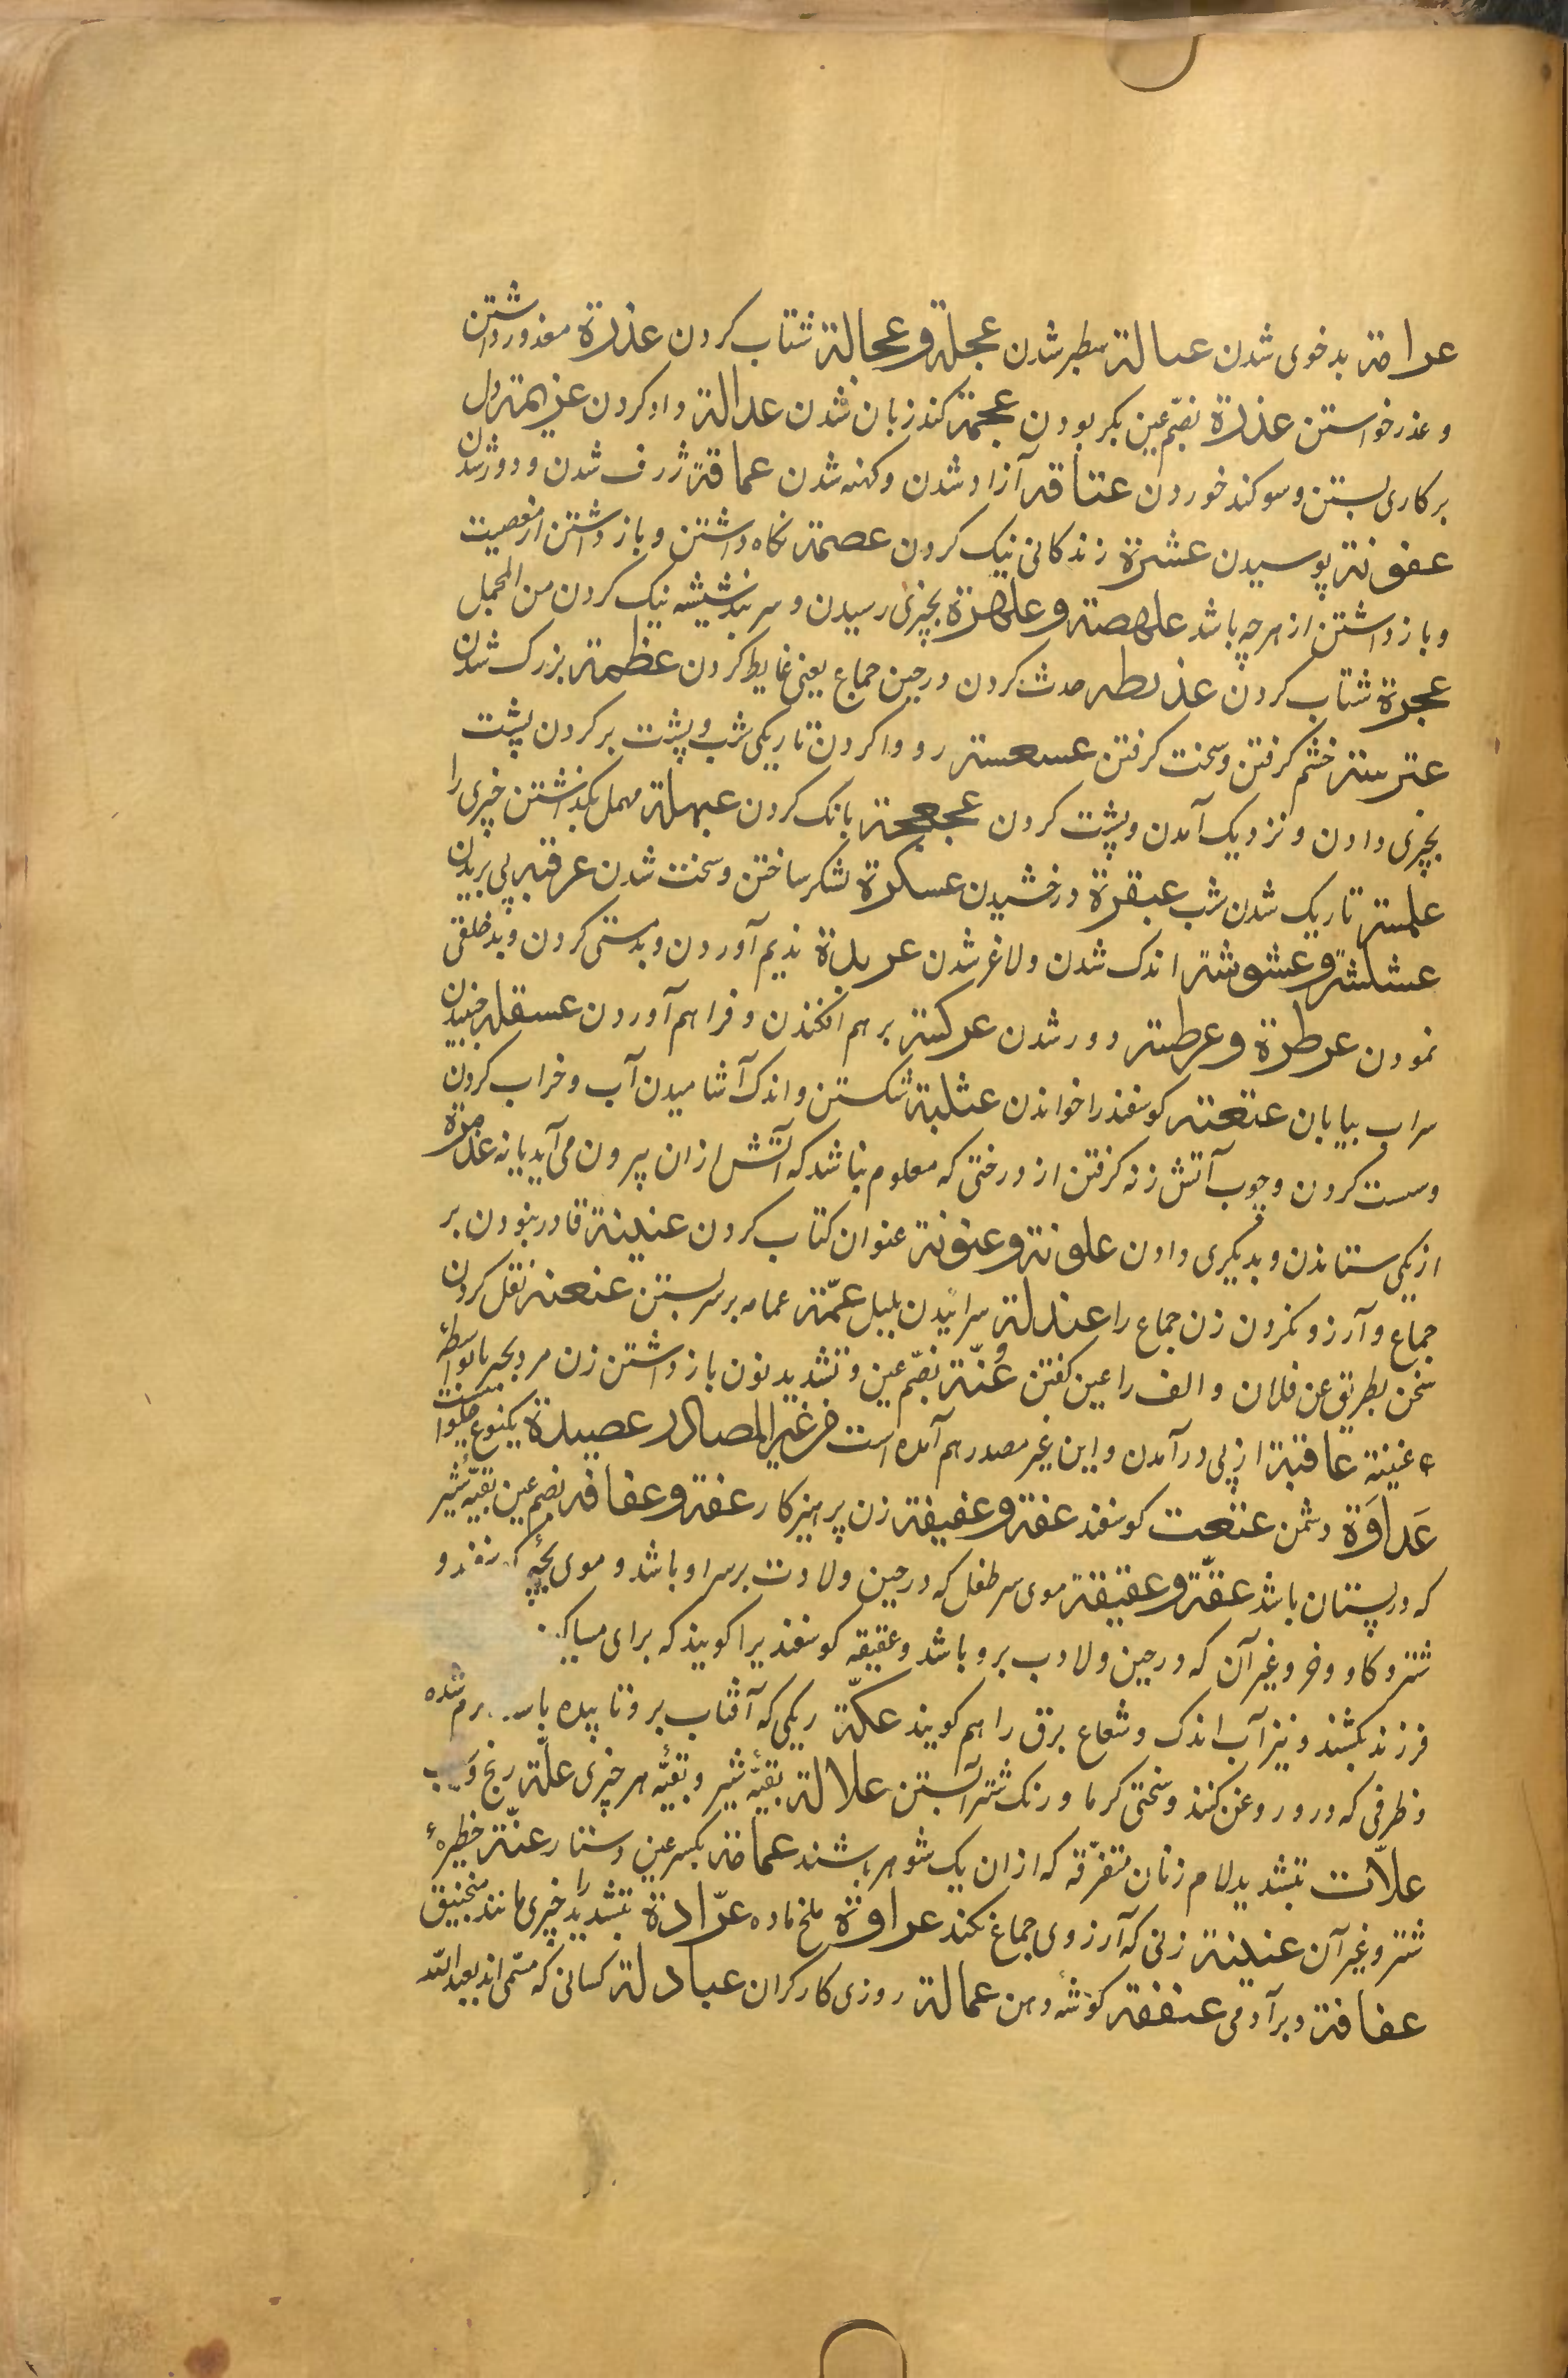 عراضة بدخوی شدن عبالة سطبر شدن عجلة و عجالة شتاب کردن عذرة معذور داشتن
و عذر خواستن عذرة بضم عین بکر بودن عجمة کند زبان شدن عدالة داد کردن عزیمة دل
بر کاری بستن و سوکند خوردن عتاقه آزاد شدن و کهنه شدن عماقة ژرف شدن و دور شدن
عفونة پوسیدن عشرة زندکانی نیک کردن عصمة نکاه داشتن و باز داشتن از معصیت
و باز داشتن از هر چه باشد علهصة و علهزة بچیزی رسیدن و سر بند شیشه نیک کردن من المجمل
عجرة شتاب کردن عذیطه حدث کردن در حین جماع یعنی غایط کردن عظمة بزرک شدن
عترسة خشم کرفتن و سخت کرفتن عسعسة رو وا کردن تاریکی شب و پشت بر کردن پشت
بچیزی دادن و نزدیک آمدن و پشت کردن عجعجة بانک کردن عبهلة مهمل بکذاشتن چیزی را
علمسة تاریک شدن شب عبقرة درخشیدن عسکرة لشکر ساختن و سخت شدن عرقبة پی بریدن
عشلشة و عشوشة اندک شدن و لاغر شدن عربدة ندیم آوردن و بدمستی کردن و بد خلقی
نمودن عرطزة و عرطسة دور شدن عرکسة بر هم افکندن و فراهم آوردن عسقلة جنبیدن
سراب بیابان عتعتة کوسفند را خواندن عثلبة شکستن و اندک آشامیدن آب و خراب کردن
و سست کردن و چوب آتش زنه کرفتن از درختی که معلوم نباشد که آتش از ان بیرون می آید یا نه
از یکی ستاندن و بدیکری دادن علونة و عنونة عنوان کتاب کردن عنینة قادر نبودن بر
جماع و آرزو نکردن زن جماع را عندلة سراییدن بلبل عمّة عمامه بر سر بستن عنعنة نقل کردن
سخن بطریق عن فلان و الف را عین کفتن عُنّة بضم عین و تشدید نون باز داشتن زن مرد
عنینة عاقبة از پی در آمدن و این غیر مصدر هم آمده است من غیر المصادر عصیدة یکنوع حلوا
عَداوَة دشمن عنعت کوسفند عفة و عفیفة زن پرهیزکار عفة و عفافه بضم عین بقیّهٔ شیر
که در پستان باشد عقّة و عقیقة موی سر طفل که در حین ولادت بر سر او باشد و موی بچهٔ
شتر و کاو و خر و غیر آن که در حین ولادت برو باشد و عقیقه کوسفندیرا کویند که برای
فرزند بکشند و نیز آب اندک و شعاع برق را هم کویند عکّة ریکی که آفتاب بر و تابیده کرم شده
و ظرفی که در و روغن کنند و سختی کرما و رنک شتر آبستن علالة بقیّهٔ شیر و بقیّه هر چیزی علّة رنج
علاّت بتشدید لام زنان متفرّقه که از ان یک شوهر باشند عماضة بکسر عین دستار عنّة حظیرهٔ
شتر و غیر آن عنینة زنی که آرزوی جماع نکند عرادة ملخ ماده عرّادة بتشدید را چیزی مانند منجنیق
عفافة دبر آدمی عنفقة کوشهٔ دهن عمالة روزی کارکران عبادلة کسانی که مسمّی اند بعبد اللّه